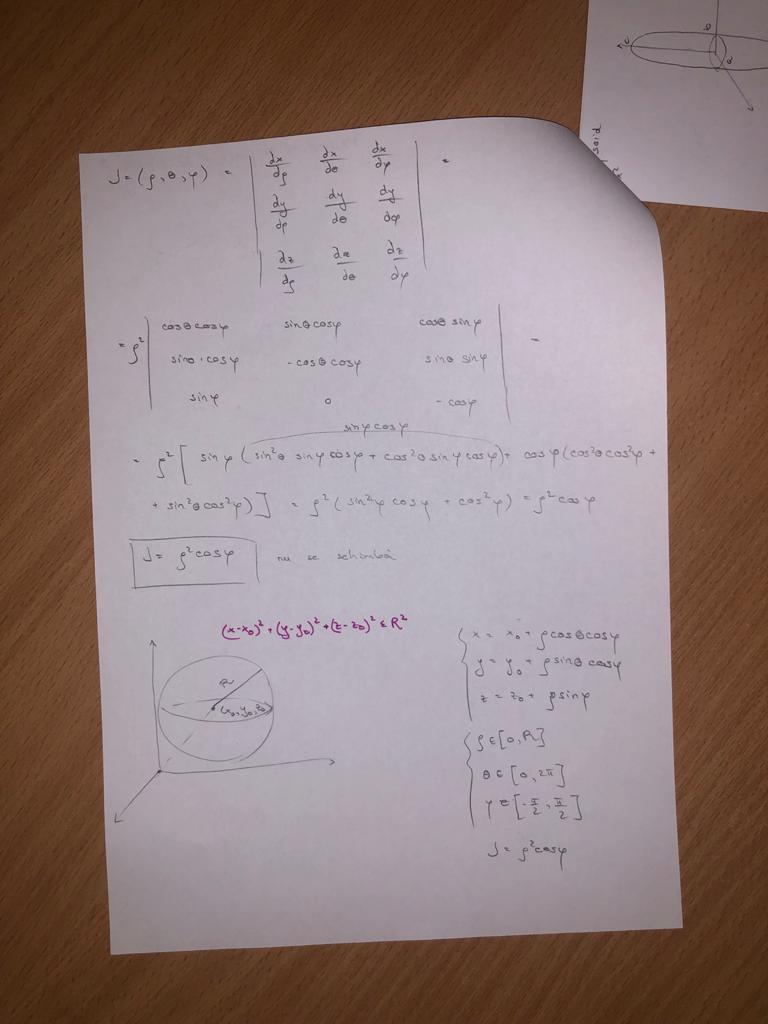 J=(ρ,θ,φ) = | dx/dρ dx/dθ dx/dφ | =
| dy/dρ dy/dθ dy/dφ |
| dz/dρ dz/dθ dz/dφ |
= ρ² | cosθcosφ sinθcosφ cosθ sinφ | =
| sinθ·cosφ -cosθcosφ sinθ sinφ |
| sinφ 0 -cosφ |
sinφcosφ
= ρ² [ sinφ (sin²θ sinφ cosφ + cos²θ sinφ cosφ) + cosφ (cos²θcos²φ +
+ sin²θcos²φ) ] = ρ² (sin²φ cosφ + cos²φ) = ρ²cosφ
J= ρ²cosφ nu se schimbă
(x-x₀)²+(y-y₀)²+(z-z₀)² ≤ R²
R
(x₀,y₀,z₀)
x = x₀ + ρcosθcosφ
y = y₀ + ρsinθ cosφ
z = z₀ + ρsinφ
ρ∈[0,R]
θ∈[0,2π]
φ∈[-π/2,π/2]
J= ρ²cosφ
c
b
a